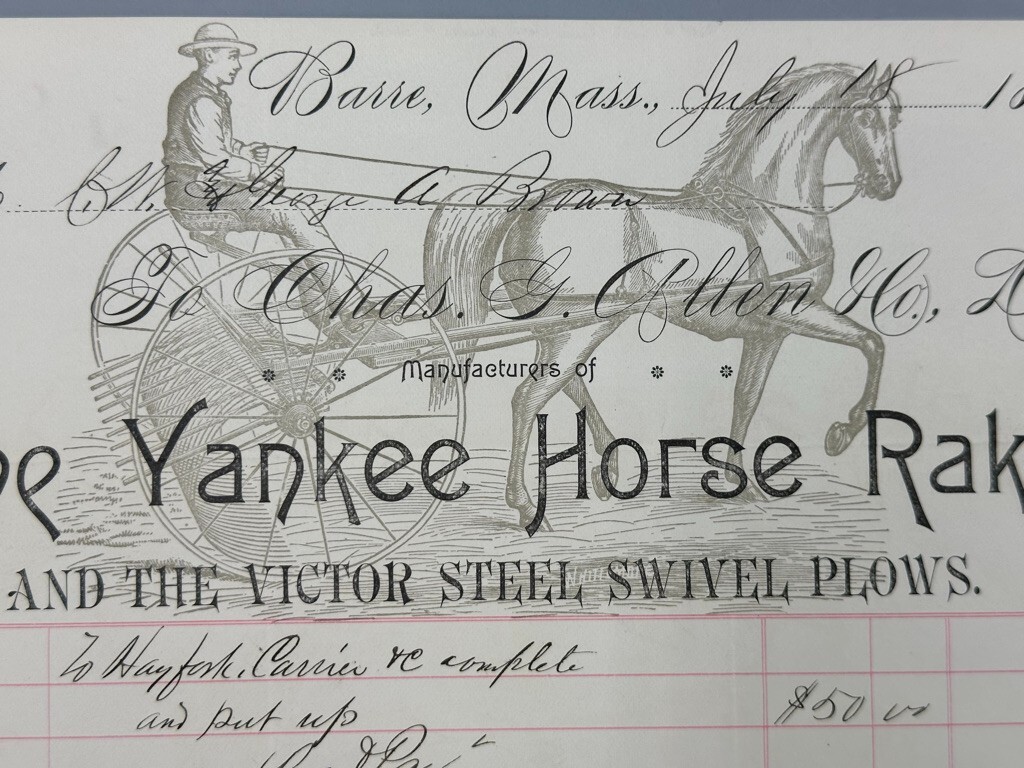 Barre, Mass., July 18 18
C. W. & George A Brown
To Chas. G. Allen & Co., D
Manufacturers of
he Yankee Horse Rak
AND THE VICTOR STEEL SWIVEL PLOWS.
To Hayfork, Carrier &c complete
and put up $50 00